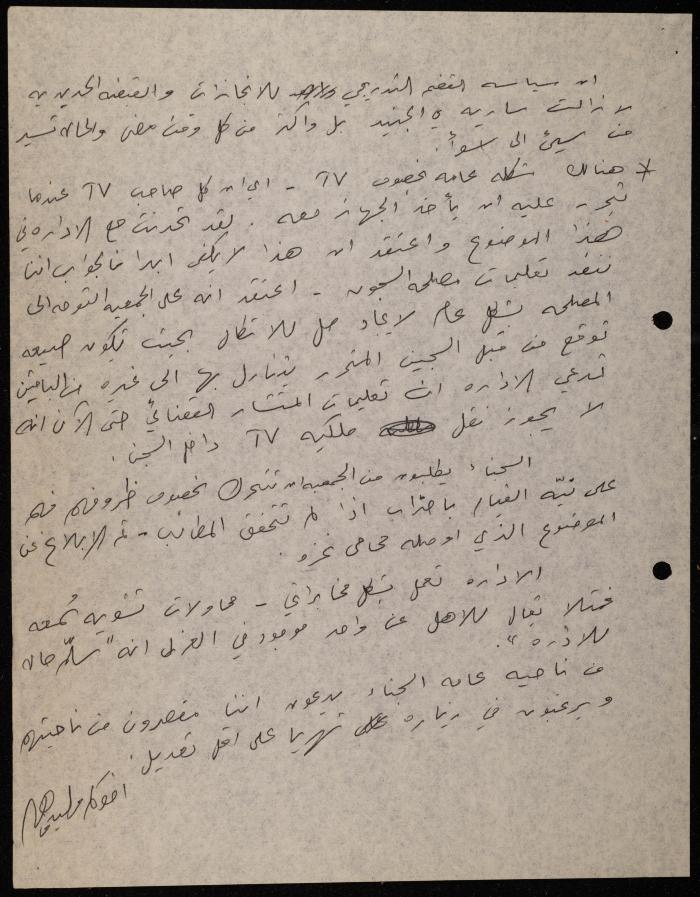 ان سياسه القضم التدريجي للانجازات والقبضه الحديديه
لا زالت ساريه في الجنيد بل واكثر من كل وقت مضى والحاله تسير
من سيئ الى اسوأ.
* هنالك مشكله عامه بخصوص TV - اي ان كل صاحب TV عندما
يتحرر عليه ان يأخذ الجهاز معه . لقد تحدثت مع الاداره في
هذا الموضوع واعتقد ان هذا لا يكفي ابدا فالجواب اننا
ننفذ تعليمات مصلحه السجون - اعتقد انه على الجمعيه التوجه الى
المصلحه بشكل عام لايجاد حل للاشكال بحيث تكون صيغه
توقع من قبل السجين المتحرر يتنازل بها الى غيره من الباقين
تدعي الاداره ان تعليمات المستشار القضائي حتى الآن انه
لا يجوز نقل ملكيه TV داخل السجن .
السجناء يطلبون من الجمعيه ان تتحرك بخصوص ظروفهم فهم
على نيّه القيام باضراب اذا لم تتحقق المطالب - تم الابلاغ عن
الموضوع الذي اوصله محامي غزه .
الاداره تعمل بشكل مخابراتي - محاولات تشويه سُمعه
فمثلا يقال للاهل عن واحد موجود في العزل انه "سلّم حاله
للاداره".
من ناحيه عامه السجناء يدعون اننا مقصرون من ناحيتهم
ويرغبون في زياره شهريا على اقل تعديل .
اخوكم